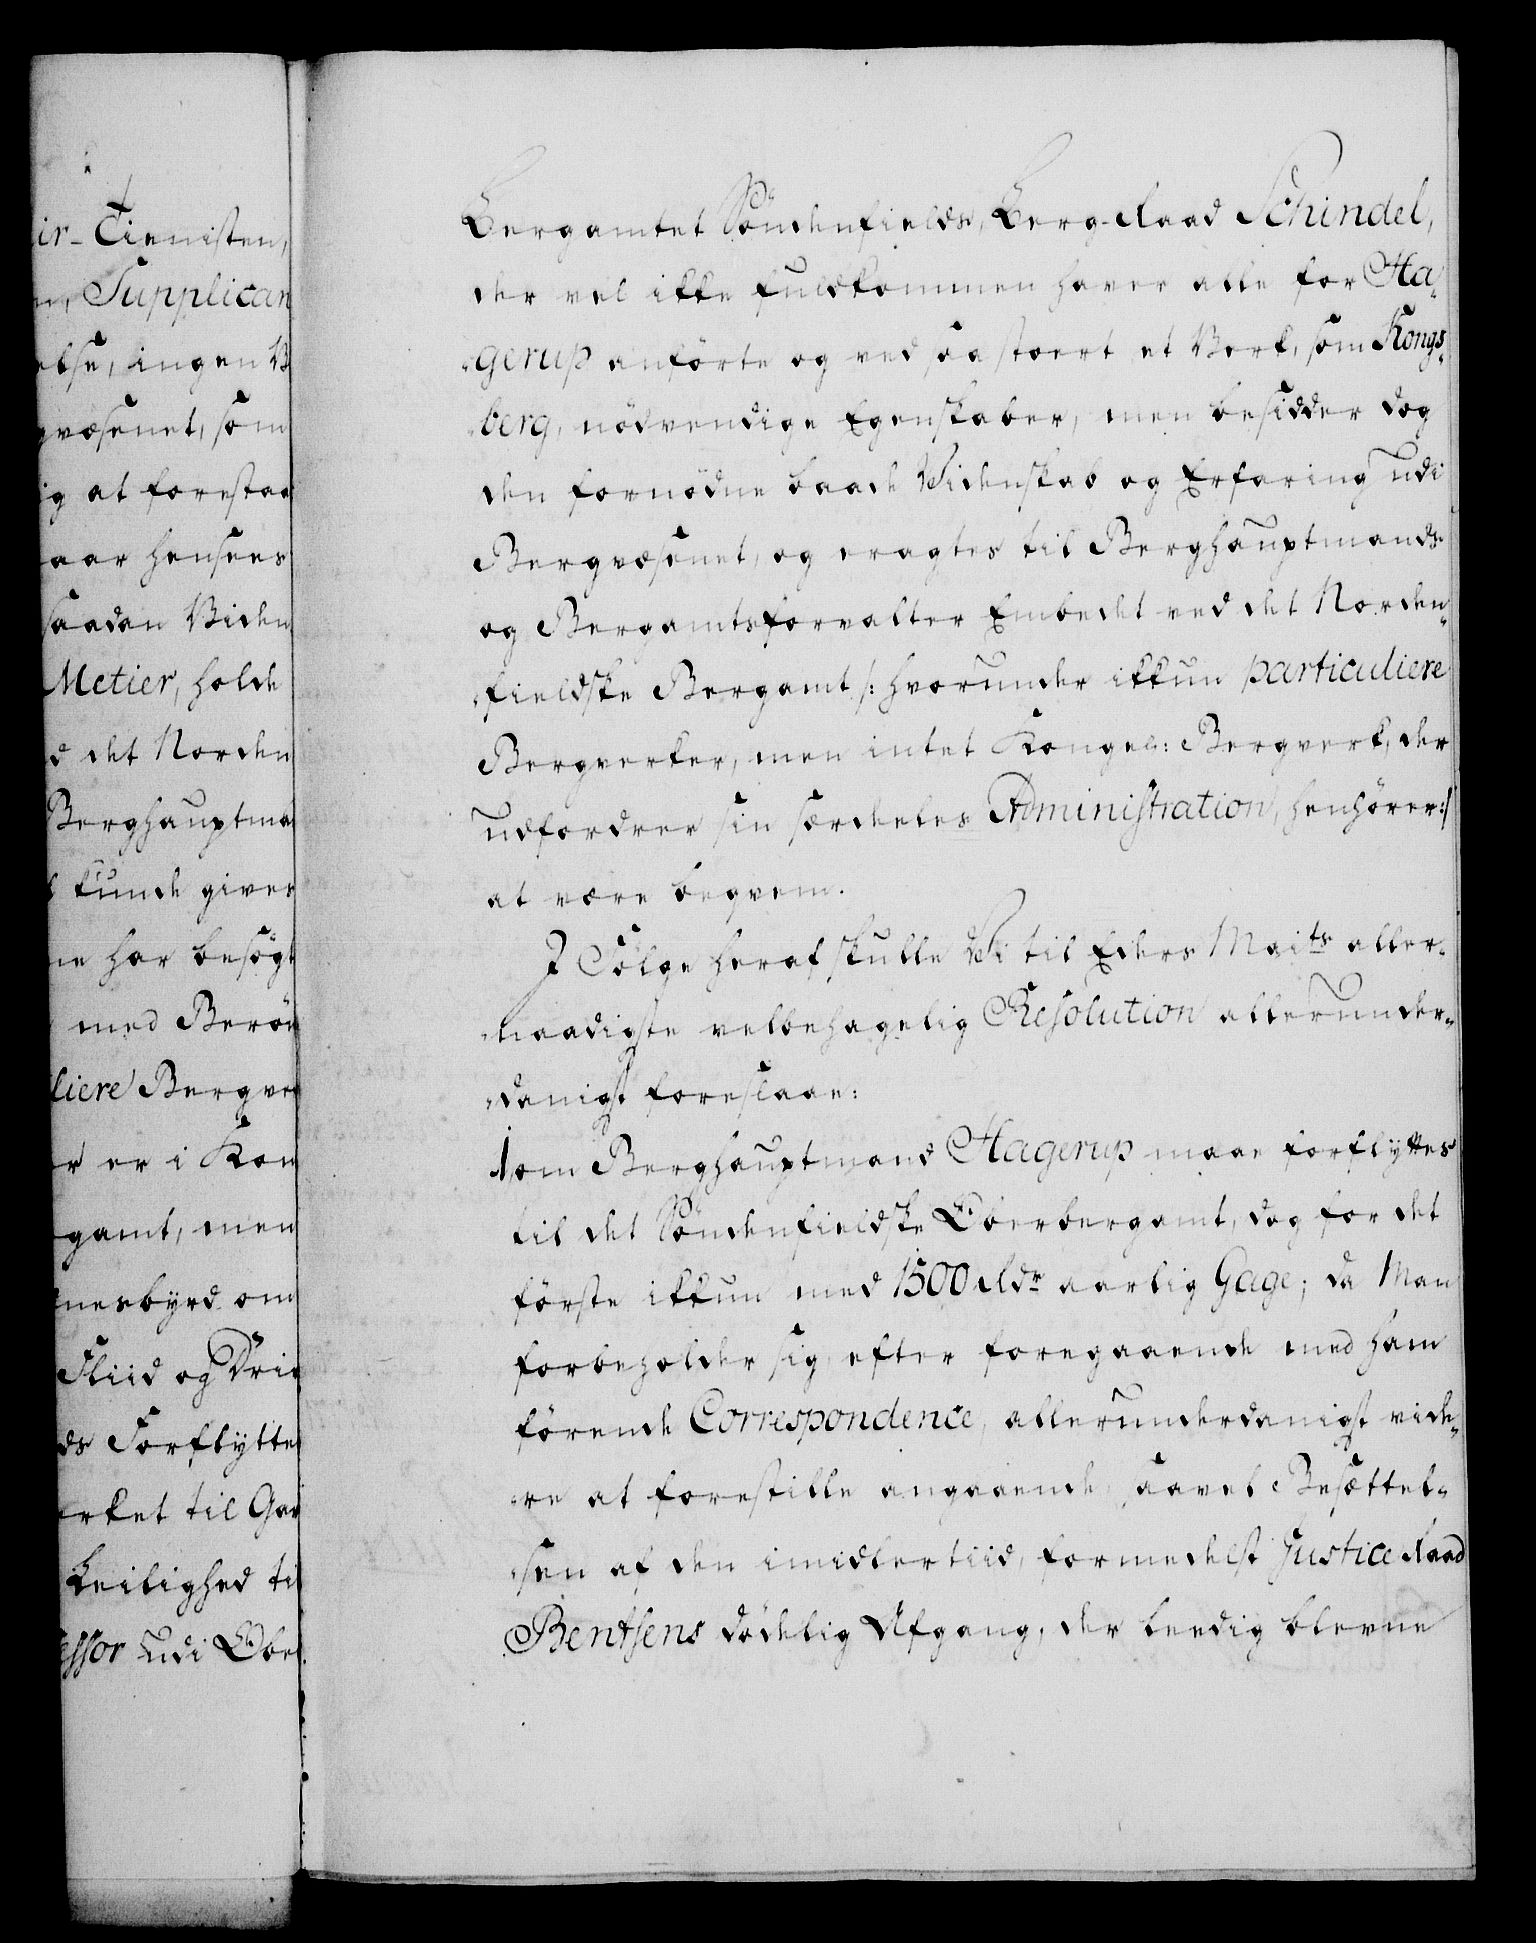 ir-Tienisten,
n, Supplican
else, ingen B
gvæsenet, som
ig at forestaa
aar hensees
saadan Viden
Metier, holde
d det Norden
Berghauptma
kunde gives
ne har besøgt
med Berøm
liere Bergver
r er i Kon
gamt, men
nesbyrd om
Fliid og Drif
ds Forflytte
erket til Gar
Leilighed ti
essor udi Ober
Bergamtet Söndenfields, Berg-Raad Schindel,
der vel ikke fuldkommen haver alle for Ha-
gerup anförte og ved saa stoert et Verk, som Kongs-
berg, nödvendige Egenskaber, men besidder dog
den fornödne baade Videnskab og Erfaring udi
Bergvæsenet, og eragtes til Berghauptmands
og Bergamtsforvalter Embedet ved det Norden-
fieldske Bergamt /: hvorunder ikkun particuliere
Bergverker, men intet Kongel: Bergverk, der
udfordrer sin særdeles Administration, henhörer :/
at være beqvem.
I Fölge heraf skulle Vi til Eders Maits aller-
naadigste velbehagelig Resolution allerunder-
danigst foreslaae:
1, om Berghauptmand Hagerup maae forflyttes
til det Söndenfieldske Oberbergamt, dog for det
förste ikkun med 1500 Rdr aarlig Gage; da Man
forbeholder sig, efter foregaaende med ham
förende Correspondence, allerunderdanigst vide-
re at forestille angaaende, saavel Besættel-
sen af den imidlertiid, formedelst Justice Raad
Bentsens dödelig Afgang, der leedig blevne